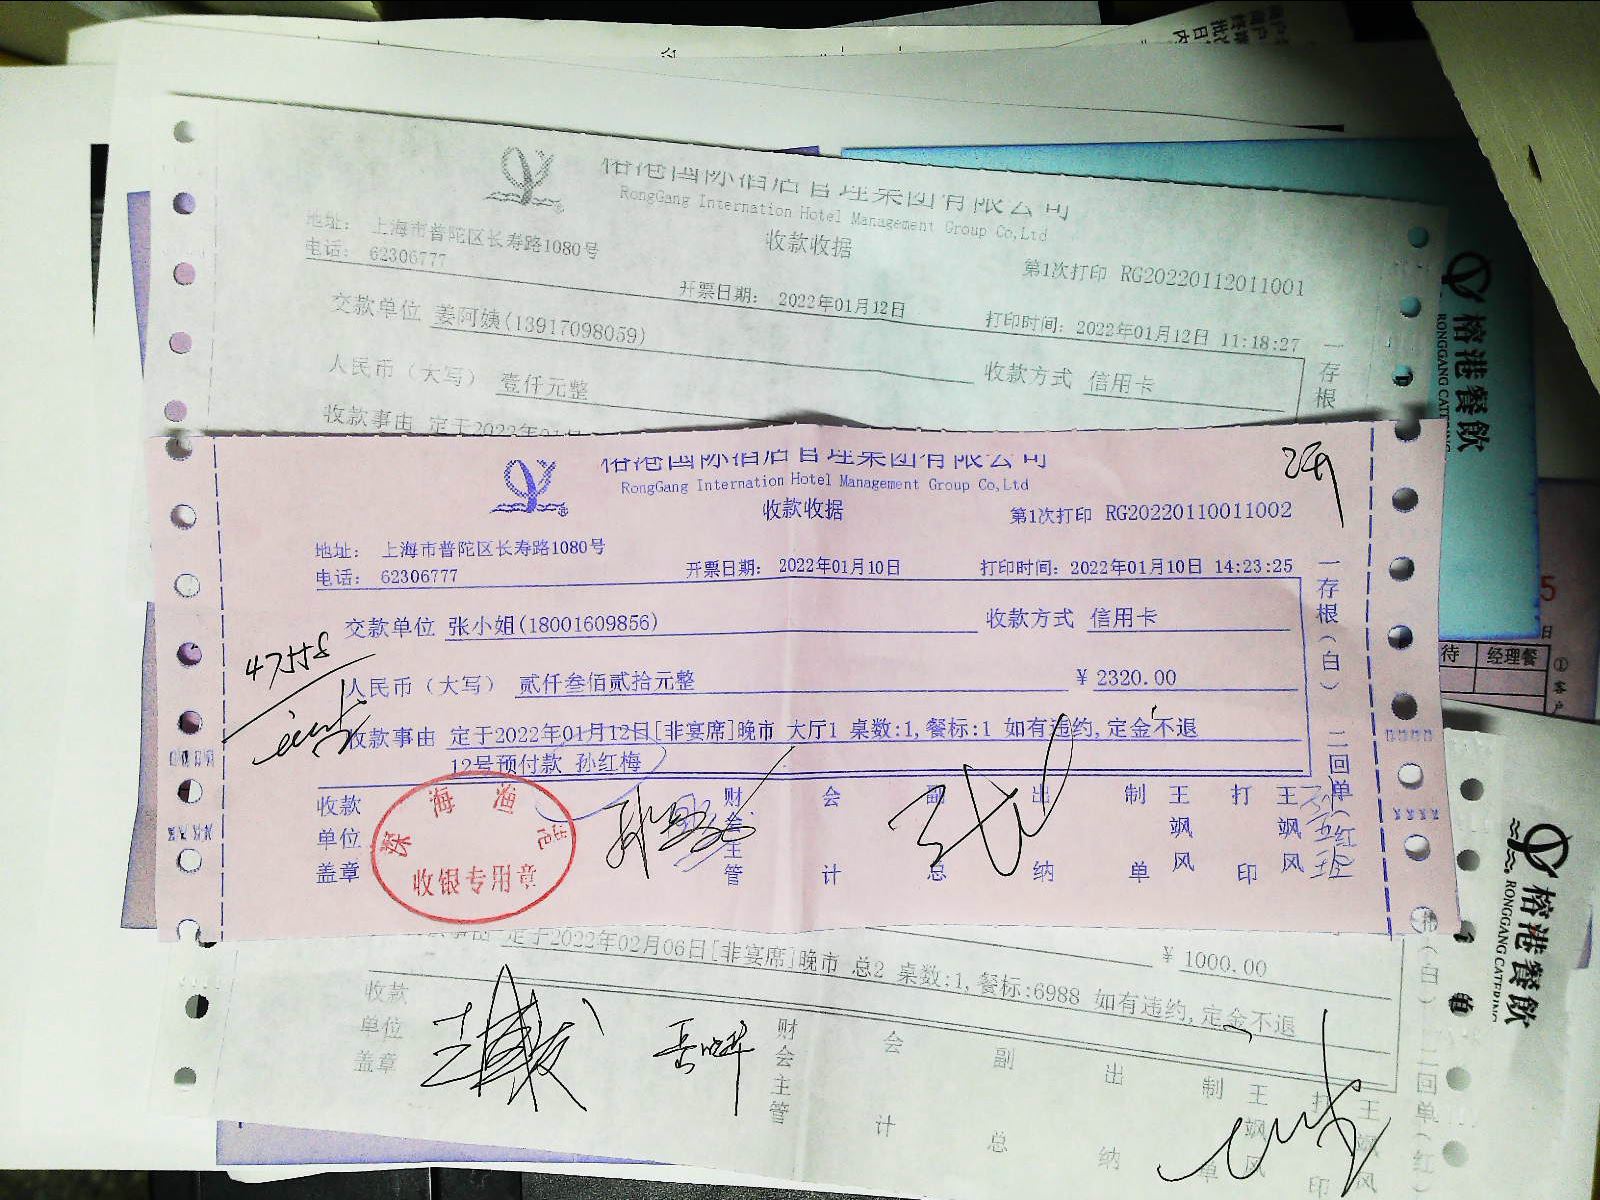 榕港国际酒店管理集团有限公司
RongGang Internation Hotel Management Group Co,Ltd
收款收据
地址： 上海市普陀区长寿路1080号
电话： 62306777
第1次打印 RG20220112011001
开票日期： 2022年01月12日
打印时间：2022年01月12日 11:18:27
交款单位 姜阿姨(13917098059)
收款方式 信用卡
人民币（大写） 壹仟元整
收款事由 定于2022年01月
一存根
榕港餐飲
RONGGANG CATERING
榕港国际酒店管理集团有限公司
RongGang Internation Hotel Management Group Co,Ltd
收款收据
第1次打印 RG20220110011002
地址： 上海市普陀区长寿路1080号
电话： 62306777
开票日期： 2022年01月10日
打印时间：2022年01月10日 14:23:25
交款单位 张小姐(18001609856)
收款方式 信用卡
47558
人民币（大写） 贰仟叁佰贰拾元整
￥2320.00
收款事由 定于2022年01月12日[非宴席]晚市 大厅1 桌数:1,餐标:1 如有违约,定金不退
12号预付款 孙红梅
一存根(白) 二回单(红
收款单位盖章
深海渔港
收银专用章
财会主管
会计
副总
出纳
制单
王飒风
打印
王飒风
待 经理餐
5
日
①客户
￥ 1000.00
收款事由 定于2022年02月06日[非宴席]晚市 总2 桌数:1,餐标:6988 如有违约,定金不退
收款单位盖章
财会主管
会计
副总
出纳
制单
王飒风
打印
王飒风
(白) 二回单(红
榕港餐飲
RONGGANG CATERING